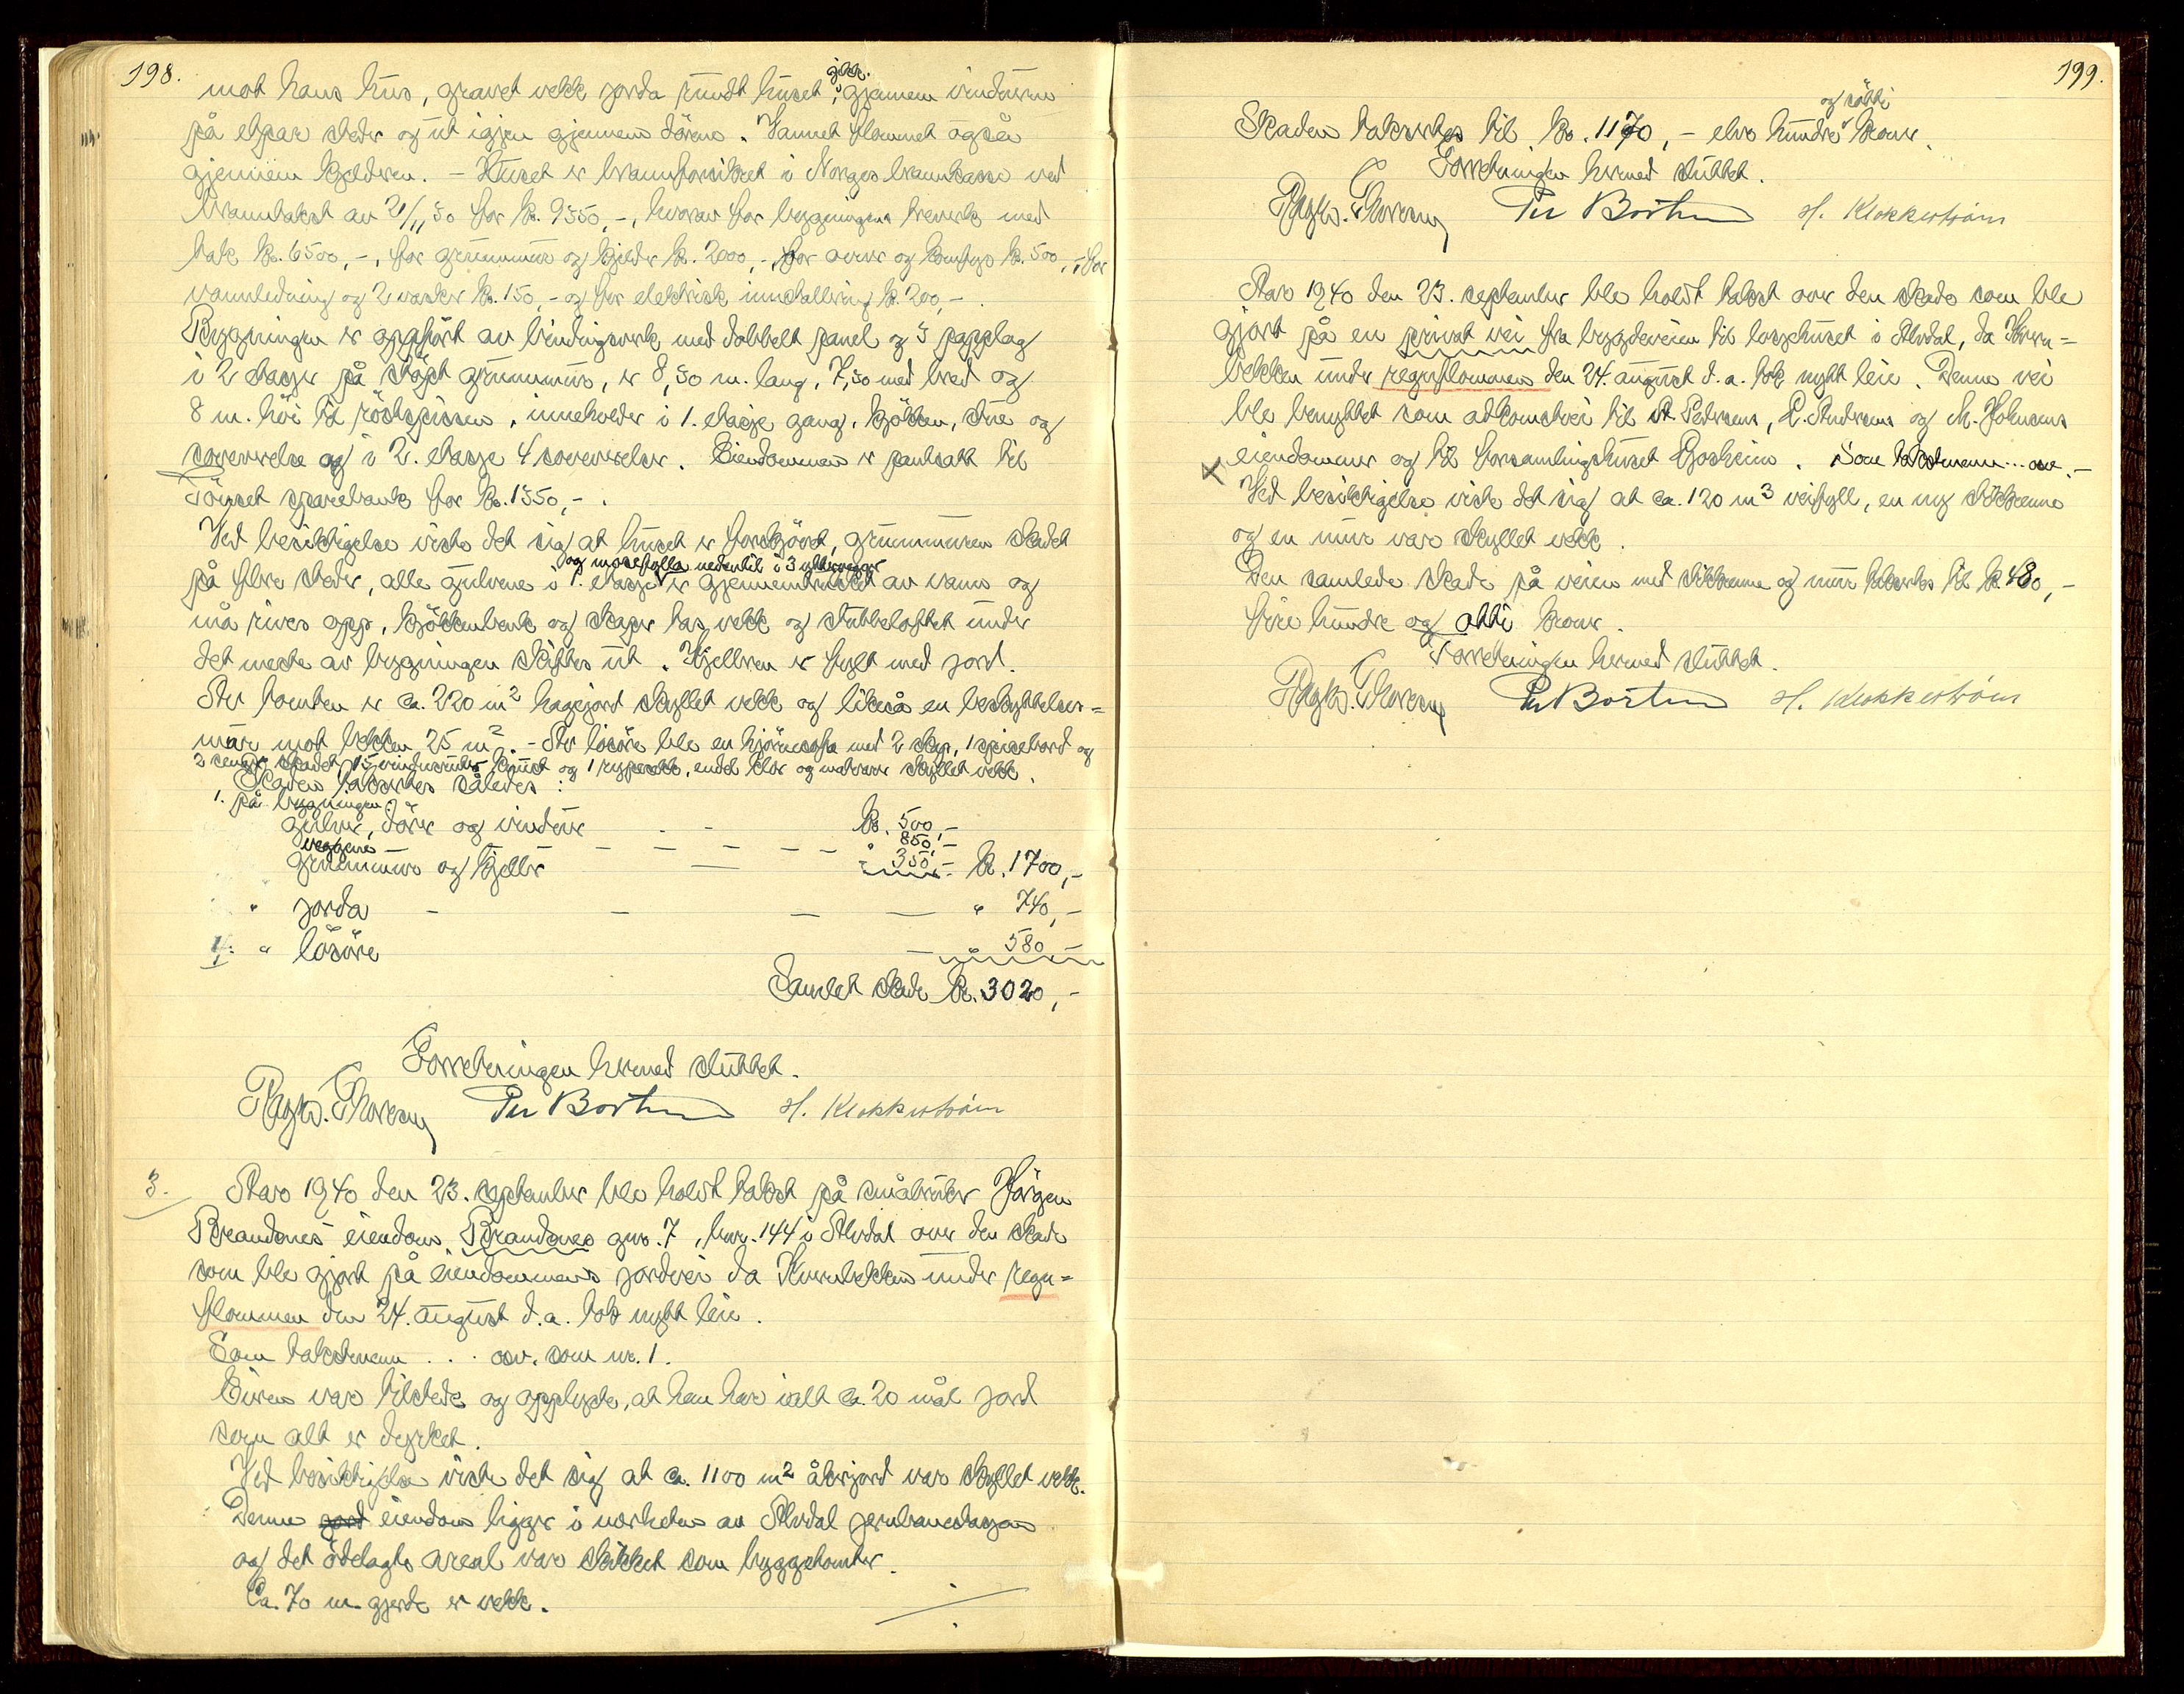 198.
mot hans hus, gravet vekk jorda rundt huset, gikk gjennem vinduerne
på etpar steder og ut igjen gjennem dörene. Vannet flommet også
gjennem kjelderen. – Huset er brannforsikret i Norges brannkasse ved
branntakst av 21/11 30 for kr. 9350,-, hvorav for bygningens treverk med
tak kr. 6500,-, for grunnmur og kjelder kr. 2000,-, for ovner og komfyr kr. 500,-, for
vannledning og 2 vasker kr. 150,- og for elektrisk innstallering kr. 200,-.
Bygningen er oppfört av bindingsverk med dobbelt panel og 3 papplag
i 2 etasjer på stöpt grunnmur, er 8,50 m. lang, 7,50 med bred og
8 m. höi til röstspissen, inneholder i 1. etasje gang, kjökken, stue og
soveverelse og i 2. etasje 4 soveverelser. Eiendommen er pantsatt til
Tönset sparebank for kr. 1350,-.
Ved besiktigelse viste det sig at huset er forskjövet, grunnmuren skadet
og mosefylla nedentil i 3 yttervegger
på flere steder, alle gulvene i 1. etasje er gjennemtrukket av vann og
må rives opp, kjökkenbenk og skaper tas vekk og stubbeloftet under
det meste av bygningen skiftes ut. Kjelleren er fylt med jord.
Av tomten er ca. 220 m² hagejord skyllet vekk og likeså en beskyttelses=
mur mot bekken 25 m². – Av lösöre ble en hjörnesofa med 2 skap, 1 spisebord og
3 senger skadet, 15 vinduer knust og 1 ryggsekk, endel klær og matvarer skyllet vekk.
Skaden takseres således:
1. på bygningen:
gulver, dörer og vinduer - - kr. 500,-
veggene - - - - - - " 850,-
grunnmur og kjeller - " 350,- kr. 1700,-
" jorda - - - - " 740,-
" lösöre - " 580,-
Samlet skade kr. 3020,-
Forretningen hermed sluttet.
Per Borten H. Klokkerström
3. Aar 1940 den 23. september ble holdt takst på småbruker Jörgen
Brandsnes eiendom Brandsnes gnr. 7, bnr. 144 i Alvdal over den skade
som ble gjort på eiendommens jordvei da Kvernbekken under regn=
flommen den 24. august d.a. tok nytt leie.
Som takstmenn . . . osv. som nr. 1.
Eieren var tilstede og opplyste, at han har ialt ca. 20 mål jord
som alt er dyrket.
Ved besiktigelse viste det sig at ca. 1100 m² åkerjord var skyllet vekk.
Denne jord eiendom ligger i nærheten av Alvdal jernbanestasjon
og det ödelagte areal var skikket som byggetomter.
Ca. 70 m. gjerde er vekk.
199.
og sötti
Skaden takseres til kr. 1170,- elve hundre kroner.
Forretningen hermed sluttet.
Per Borten H. Klokkerström
Aar 1940 den 23. september ble holdt takst over den skade som ble
gjort på en privat vei fra bygdeveien til losjehuset i Alvdal, da Kvern=
bekken under regnflommen den 24. august d.a. tok nytt leie. Denne vei
ble benyttet som adkomstvei til A. Pedersens, E. Andresens og M. Johnsens
eiendommer og til forsamlingshuset Gosheim. Som takstmenn . . . osv.-
Ved besiktigelse viste det sig at ca. 120 m³ veifyll, en ny stikrenne
og en mur var skyllet vekk.
Den samlede skade på veien med stikrenne og mur takseres til kr. 480,-
fire hundre og otti kroner.
Forretningen hermed sluttet.
Per Borten H. Klokkerström